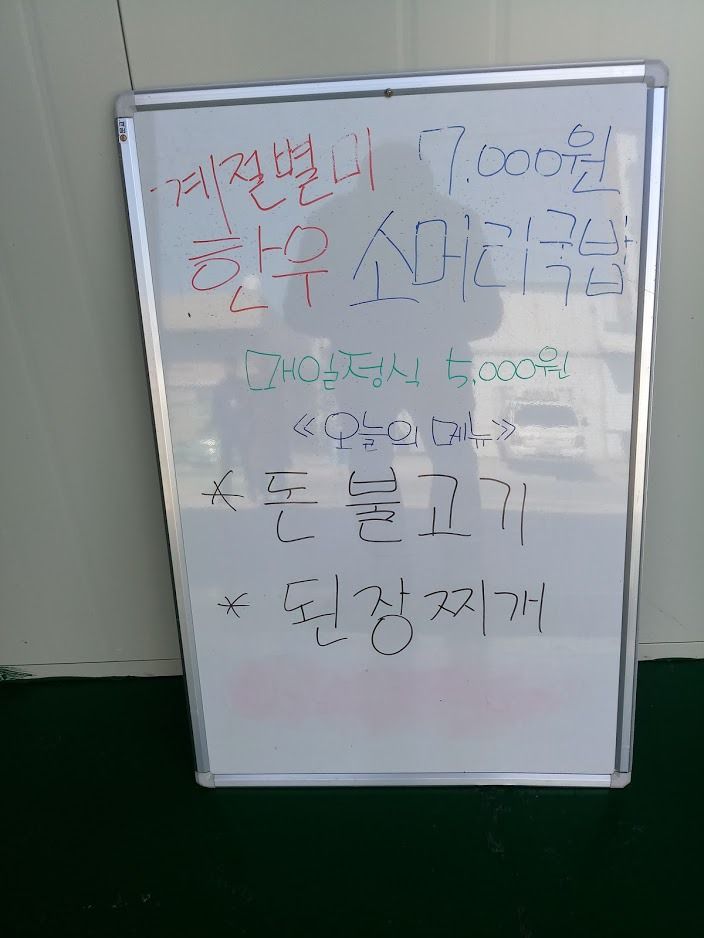 계절별미 7.000원
한우 소머리국밥
매일정식 5,000원
《오늘의 메뉴》
* 돈불고기
* 된장찌개